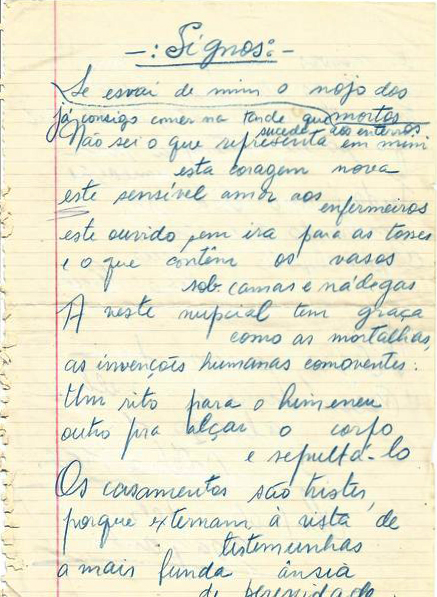 -.: Signos: -
Se esvai de mim o nojo dos mortos
já consigo comer na tarde que sucede aos enterros
Não sei o que representa em mim
esta coragem nova
este sensível amor aos
enfermeiros
este ouvido sem ira para as tosses
e o que contêm os vasos
sob camas e nádegas
A veste nupcial tem graça
como as mortalhas,
as invenções humanas comoventes:
Um rito para o himeneu
outro pra alçar o corpo
e sepultá-lo
Os casamentos são tristes
porque externam à vista de
testemunhas
a mais funda ânsia
de perenidade.